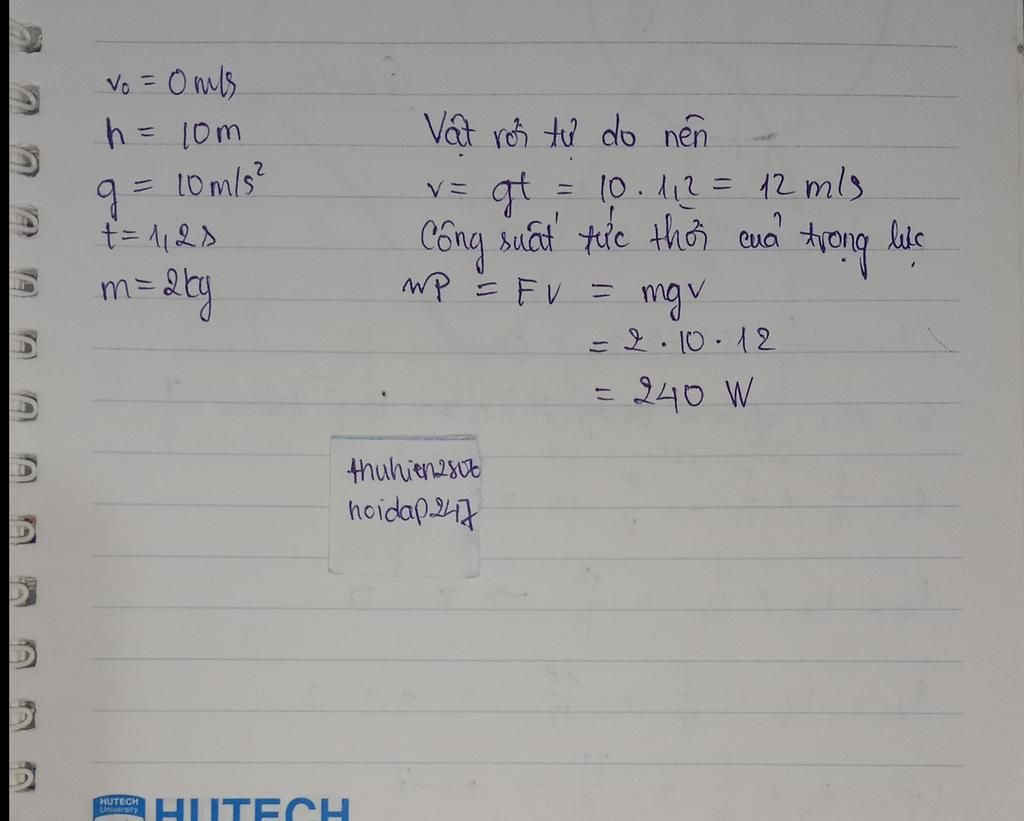 v₀ = 0 m/s
h = 10m
g = 10m/s²
t = 1,2s
m = 2kg
Vật rơi tự do nên
v = gt = 10 . 1,2 = 12 m/s
Công suất tức thời cuả trọng lực
P = Fv = mgv
= 2 . 10 . 12
= 240 W
thuhien2806
hoidap247
HUTECH
University
HUTECH